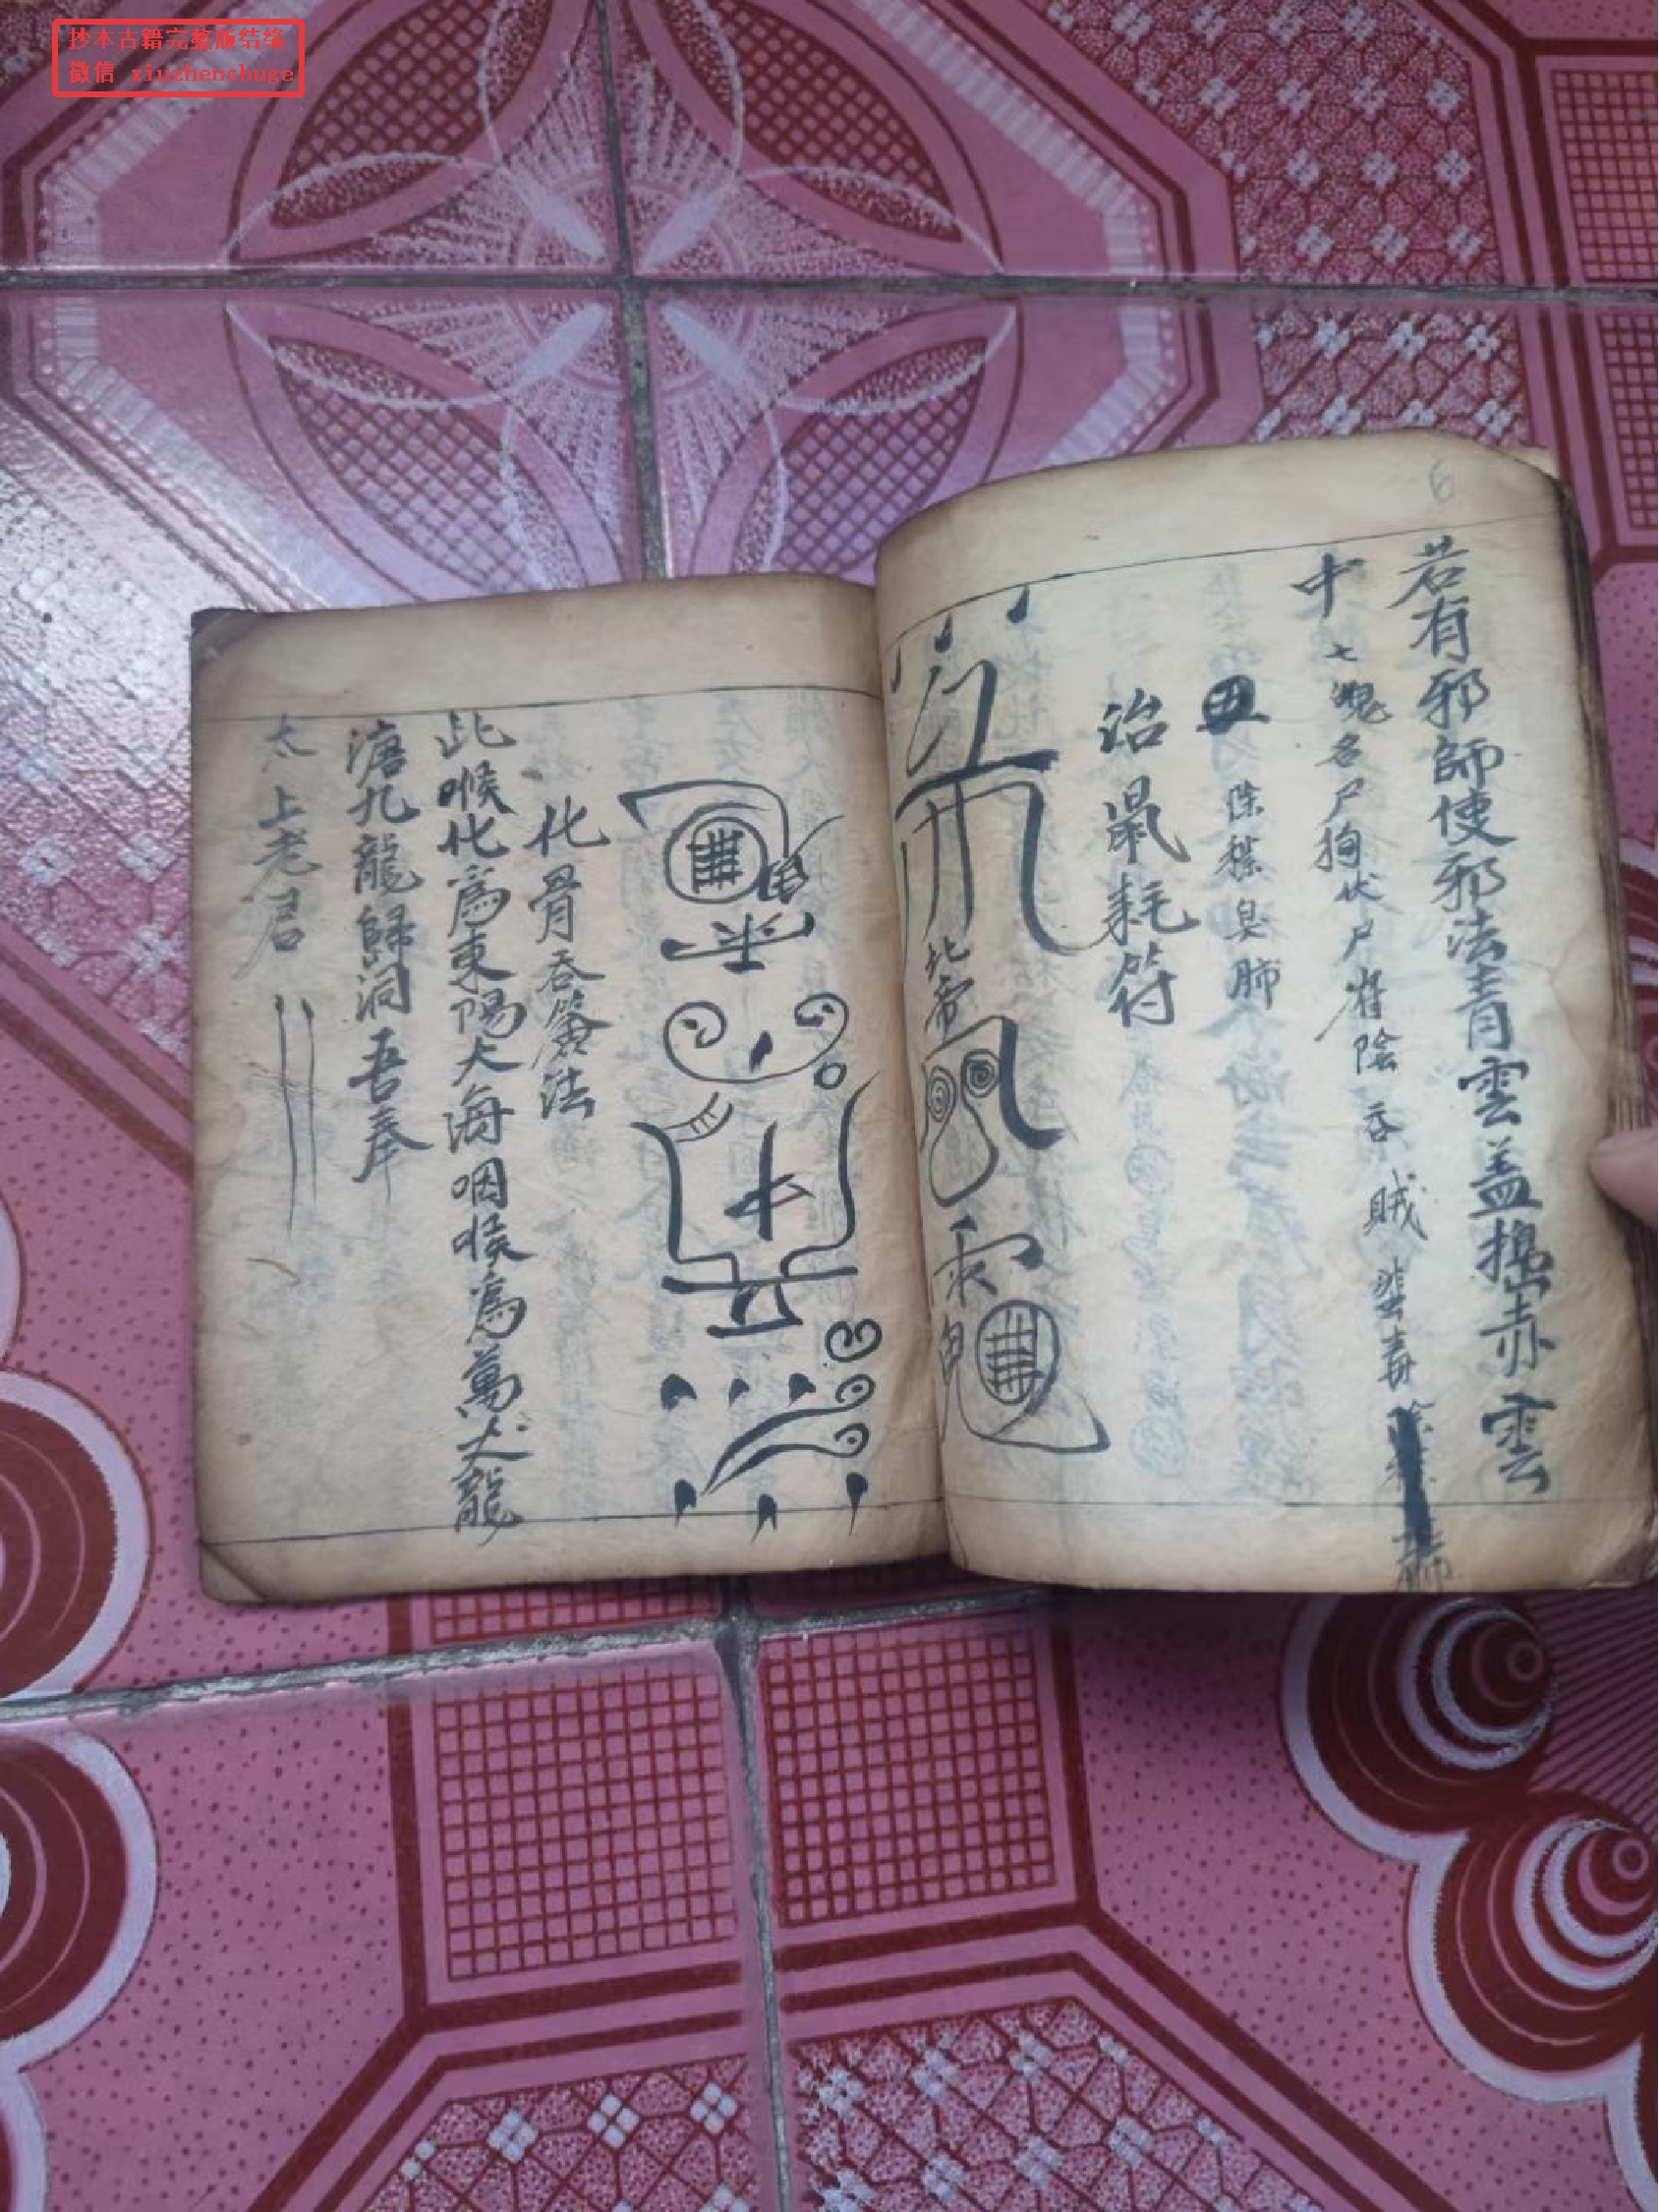 抄本古籍完整版结缘
微信 xiuzhenshuge
6
若有邪師使邪法青雲盖搗赤雲
中 七魄名尸狗伏尸雀陰吞賊蜚毒除穢 肺
丑 除穢臭肺
治鼠耗符
北帝
化骨吞籤法
此喉化為東陽大海咽喉為萬丈龍
溏九龍歸洞吾奉
太上老君